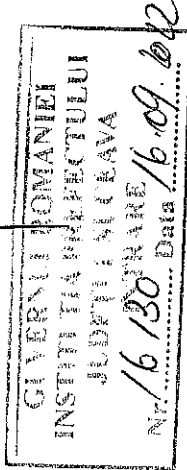 GUVERNUL ROMANIEI
INSTITUTIA PREFECTULUI
JUDETUL SUCEAVA
INTRARE
Nr. 16130 Data 16.09.2022